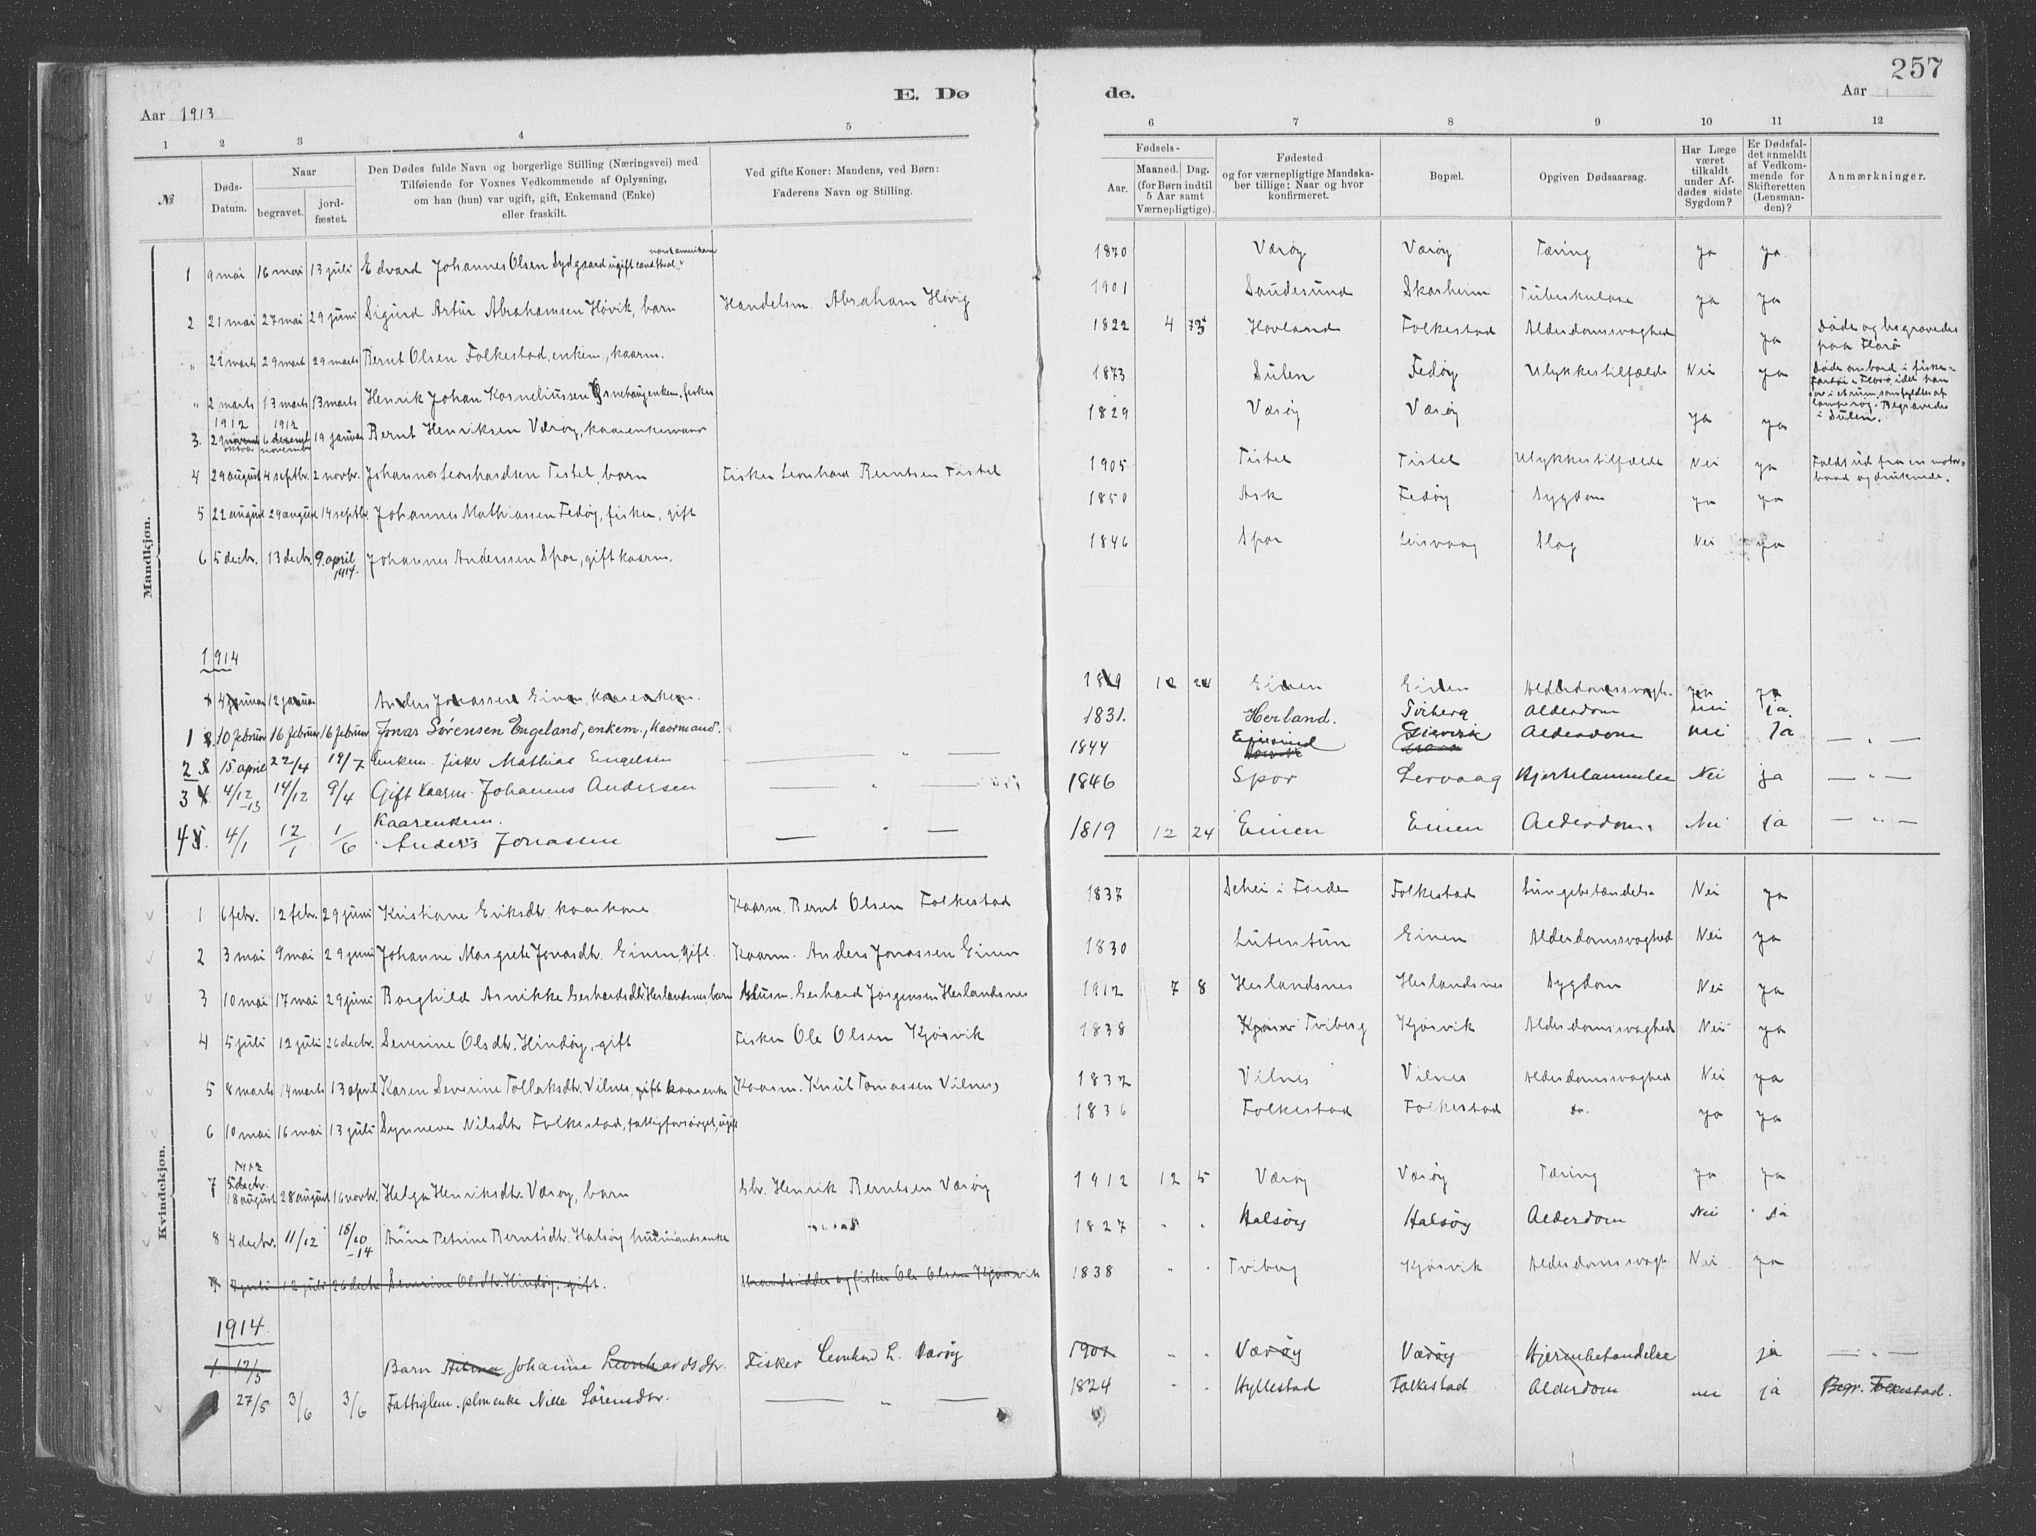 257
Aar 1913
E. Dø
de.
Aar 1
1 2 3 4 5 6 7 8 9 10 11 12
№
Døds-Datum.
Naar
begravet.
jordfæstet.
Den Dødes fulde Navn og borgerlige Stilling (Næringsvei) med
Tilføiende for Voxnes Vedkommende af Oplysning,
om han (hun) var ugift, gift, Enkemand (Enke)
eller fraskilt.
Ved gifte Koner: Mandens, ved Børn:
Faderens Navn og Stilling.
Fødsels-
Aar.
Maaned. Dag.
(for Børn indtil
5 Aar samt
Værnepligtige).
Fødested
og for værnepligtige Mandskaber tillige: Naar og hvor
konfirmeret.
Bopæl.
Opgiven Dødsaarsag.
Har Læge
været
tilkaldt
under Afdødes sidste
Sygdom?
Er Dødsfaldet anmeldt
af Vedkommende for
Skifteretten
(Lensmanden)?
Anmærkninger.
Mandkjøn.
1 9 mai 16 mai 13 juli Edvard Johannes Olsen Sydgaard ugift 1870 Værøy Værøy Tæring ja ja
2 21 mai 27 mai 29 juni Sigurd Artur Abrahamsen Høvik, barn Handelsm. Abraham Høvig 1901 Saudesund Skorheim Tuberkulose ja ja
" 22 marts 29 marts 29 marts Bernt Olsen Folkestad, enkem., kaarm. 1822 4 Hovland Folkestad Alderdomssvaghed ja Døde og begravedes paa Florø
" 2 marts 13 marts 13 marts Henrik Johan Korneliussen enkem. fisker 1873 Sulen Fedøy Ulykkestilfælde Nei ja Døde ombord i fiskefartøi i Florø, idet han sov i et rum, som fyldtes af lamperøg. Begravedes i Sulen.
1912 1912
3. 2 oktober 6 november 19 januar Bernt Henriksen Værøy, kaarenkemand 1829 Værøy Værøy ja ja
4 29 august 4 septbr. 2 novbr. Johannes Leonhardsen Tistel, barn Fisker Leonhard Berntsen Tistel 1905 Tistel Tistel Ulykkestilfælde Nei ja Faldt ud fra en motorbaad og druknede.
5 22 august 29 august 14 septbr. Johannes Mathiassen Fedøy, fisker, gift 1850 Ask Fedøy Sygdom ja ja
6 5 decbr. 13 decbr. 9. april 1914. Johannes Anderssen Spor, gift kaarm. 1846 Spor Leirvaag Slag Nei ja
1914
4 januar 12 januar Anders Jonassen Einen, kaarenkem. 1819 12 24 Einen Einen Alderdomssvagh. ja
1 10 februar 16 februar 16 februar Jonas Sørensen Engeland, enkem., kaarmand. 1831. Herland. Tviberg Alderdom nei ja
2 15 april 22/4 19/7 Enkem. fisker Mathias Engelsen 1844 Alderdom nei Ja — " —
3 4/12 -13 14/12 9/4 Gift Kaarm. Johannes Andersen — " — 1846 Spor Lervaag Hjertelammelse Nei ja — " —
4 4/1 12/1 1/6 Kaarenkem. Anders Jonassen — " — 1819 12 24 Einen Einen Alderdom. Nei Ja — " —
Kvindekjøn.
1 6 febr. 12 febr. 29 juni Kristiane Eriksdtr. kaarkone Kaarm. Bernt Olsen Folkestad 1837 Schei i Førde Folkestad Lungebetændelse Nei ja
2 3 mai 9 mai 29 juni Johanne Margrete Jonasdtr. Einen, gift. Kaarm. Anders Jonassen Einen 1830 Lutentun Einen Alderdomssvaghed Nei ja
3 10 mai 17 mai 29 juni Borghild Arnikke Gerhardsdtr. Herlandsnes barn Husm. Gerhard Jørgensen Herlandsnes 1912 7 8 Herlandsnes Herlandsnes Sygdom Nei ja
4 5 juli 12 juli 26 decbr. Severine Olsdtr. Hindøy, gift Fisker Ole Olsen Kjøsvik 1838 Tviberg Kjøsvik Alderdomssvaghed Nei ja
5 8 marts 14 marts 13 april Karen Severine Tollaksdtr. Vilnes, gift kaarenke Kaarm. Knut Tomassen Vilnes 1832 Vilnes Vilnes Alderdomssvaghed Nei ja
6 10 mai 16 mai 13 juli Synneve Nilsdtr Folkestad, fattigforsørget, ugift 1836 Folkestad Folkestad do. ja ja
7 18 august 28 august 16 novbr. Helga Henriksdtr. Værøy, barn Gbr. Henrik Berntsen Værøy 1912 12 5 Værøy Værøy Tæring ja ja
8 4 decbr. 11/12 18/10 -14 Anne Petrine Berntsdtr. Halsøy, husmandsenke 1827 " " Halsøy Halsøy Alderdom Nei Ja
9 7 juli 12 juli 26 decbr Severine Olsdtr. Hindøy, gift. Strandsidder og fisker Ole Olsen Kjøsvik 1838 " " Tviberg Kjøsvik Alderdomssvagh. Nei ja
1914
1. 17/3 Barn Johanne Leonhardsdtr. Fisker Leonhard L. Værøy " " Værøy Værøy Hjernebetændelse ja — " —
27/5 3/6 3/6 Fattiglem. plm enke Nille Sørensdtr. — " — 1824 " " Hyllestad Folkestad Alderdom nei ja Begr. Folkestad.